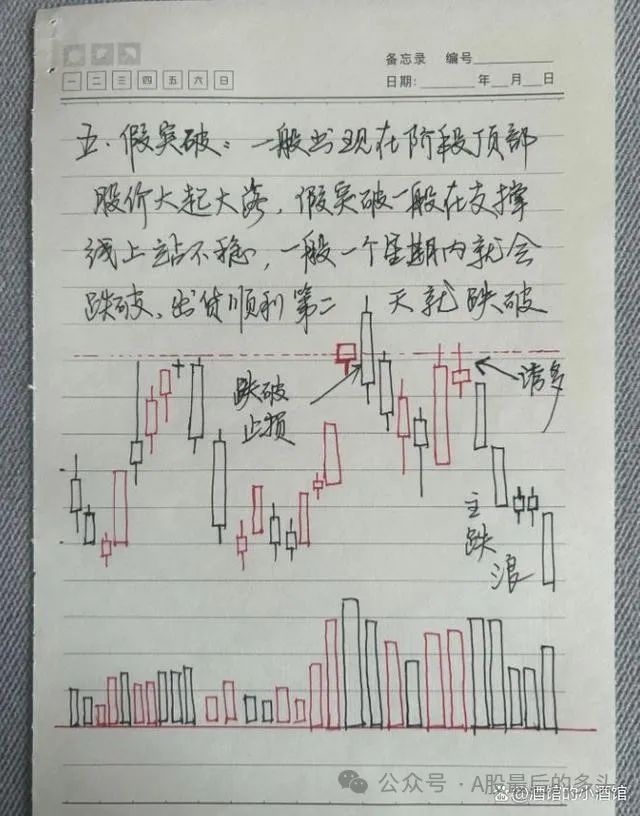 备忘录 编号
一 二 三 四 五 六 日
日期: 年 月 日
五.假突破:一般出现在阶段顶部
股价大起大落,假突破一般在支撑
线上站不稳,一般一个星期内就会
跌破、出货顺利第二 天就跌破
跌破
止损
诱多
主
跌
浪
公众号·A股最后的多头
@酒馆的小酒馆